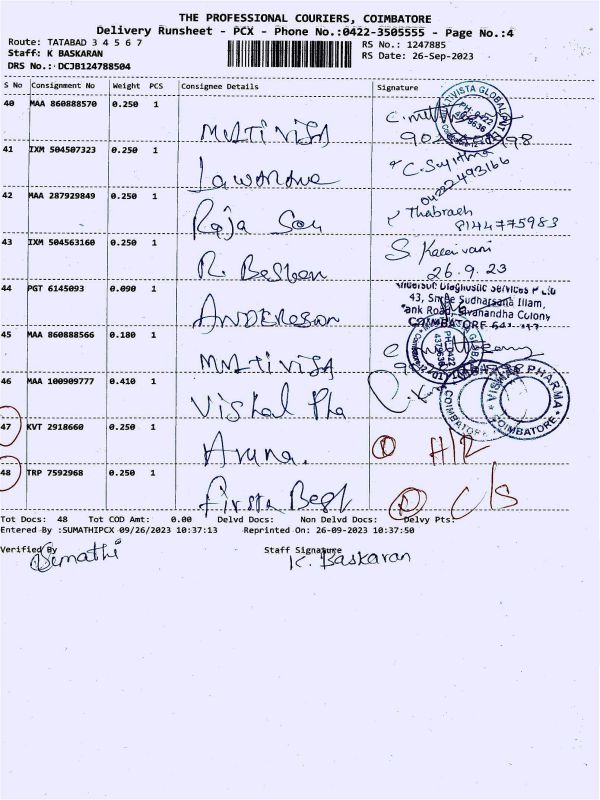 THE PROFESSIONAL COURIERS, COIMBATORE
Delivery Runsheet - PCX - Phone No.:0422-3505555 - Page No.:4
Route: TATABAD 3 4 5 6 7
RS No.: 1247885
Staff: K BASKARAN
RS Date: 26-Sep-2023
DRS No.: DCJB124788504
S No Consignment No Weight PCS Consignee Details Signature
40 MAA 860888570 0.250 1 MULTIVISTA
41 IXM 504507323 0.250 1 C. Sujitha
04222493166
42 MAA 287929849 0.250 1 Raja Thabraeh
8144775983
43 IXM 504563160 0.250 1 R. S. Kalaivani
26.9.23
44 PGT 6145093 0.090 1 ANDERSSON
Diagnostic Services P Ltd
43, Shree Sudharsana Illam,
Tank Road, Sivanandha Colony
COIMBATORE
45 MAA 860888566 0.180 1 MULTIVISTA
46 MAA 100909777 0.410 1 Vishal Pha
VISHAL PHARMA
COIMBATORE
47 KVT 2918660 0.250 1 Aruna.
48 TRP 7592968 0.250 1 Best C/S
Tot Docs: 48 Tot COD Amt: 0.00 Delvd Docs: Non Delvd Docs: Delvy Pts:
Entered By :SUMATHIPCX 09/26/2023 10:37:13 Reprinted On: 26-09-2023 10:37:50
Verified By Staff Signature
Sumathi K. Baskaran